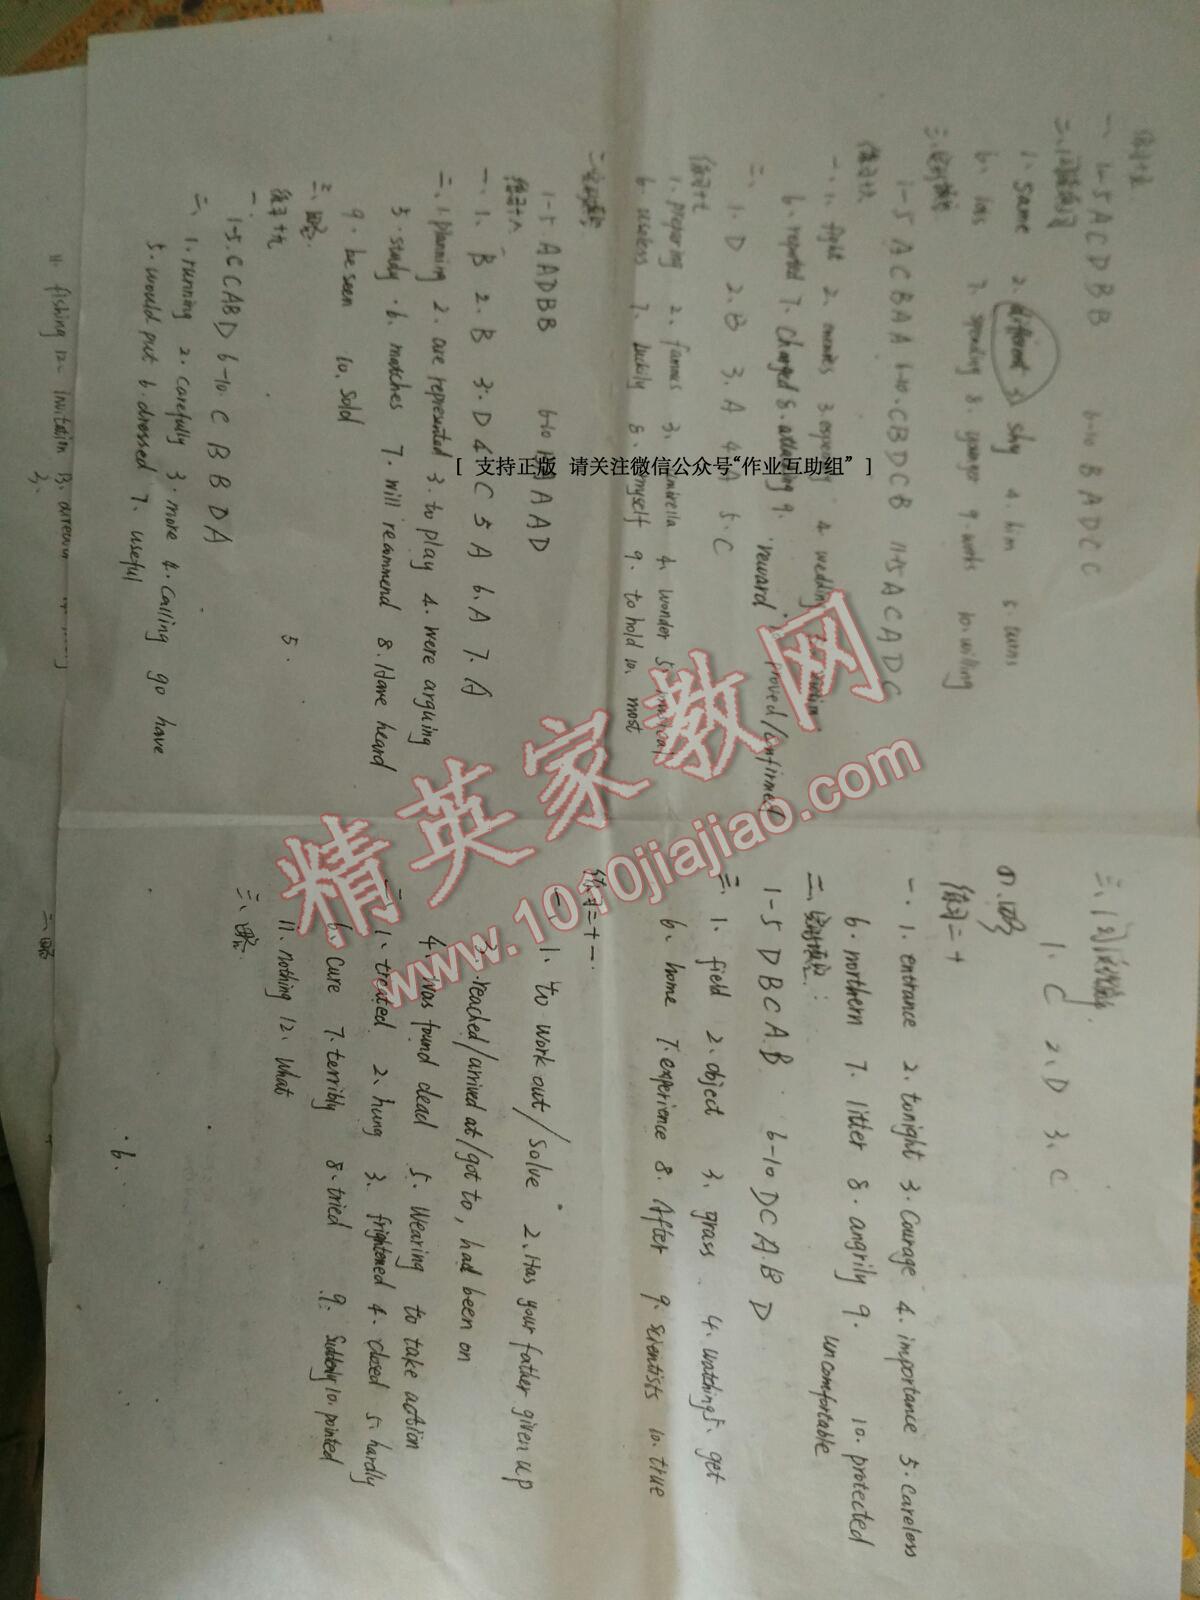 练习十五
一、1-5 A C D B B 6-10 B A D C C
1. same 2. different 3. shy 4. him 5. turns
6. has 7. spending 8. younger 9. works 10. willing
1-5 A C B A A 6-10. C B D C B 11-15 A C A D C
练习十六
一、1. fight 2. 4. wedding
6. reported 7. Charged 8. 9. reward proved/confirmed
二、1. D 2. B 3. A 4. A 5. C
练习十七
1. preparing 2. famous 3. umbrella 4. wonder 5.
6. useless 7. luckily 8. myself 9. to hold 10. most
1-5 A A D B B 6-10 A A D
练习十八
一、1. B 2. B 3. D 4. C 5 A 6. A 7. A
二、1. planning 2. are represented 3. to play 4. were arguing
5. study 6. matches 7. will recommend 8. Have heard
9. be seen 10. sold
三、略.
练习十九
一、1-5. C C A B D 6-10. C B B D A
二、1. running 2. carefully 3. more 4. calling go have
5. would put 6. dressed 7. useful
5.
11. fishing 12. invitation 13.
3.
三、
1. C 2. D 3. C
四. 略
练习二十
一、1. entrance 2. tonight 3. Courage 4. importance 5. careless
6. northern 7. litter 8. angrily 9. uncomfortable 10. protected
二、完形填空:
1-5 D B C A. B 6-10 D C A. B D
三、1. field 2. object 3. grass 4. watching 5. get
6. home 7. experience 8. After 9. scientists 10. true
练习二十一.
一、1. to work out/solve 2. Has your father given up
3. reached/arrived at/got to, had been on
4. was found dead 5. Wearing to take action
二、1. treated 2. hung 3. frightened 4. closed 5. hardly
6. cure 7. terribly 8. tried 9. Suddenly 10. pointed
11. nothing 12. What
三、略.
6.
二、略
[ 支持正版 请关注微信公众号“作业互助组” ]
精英家教网
www.1010jiajiao.com